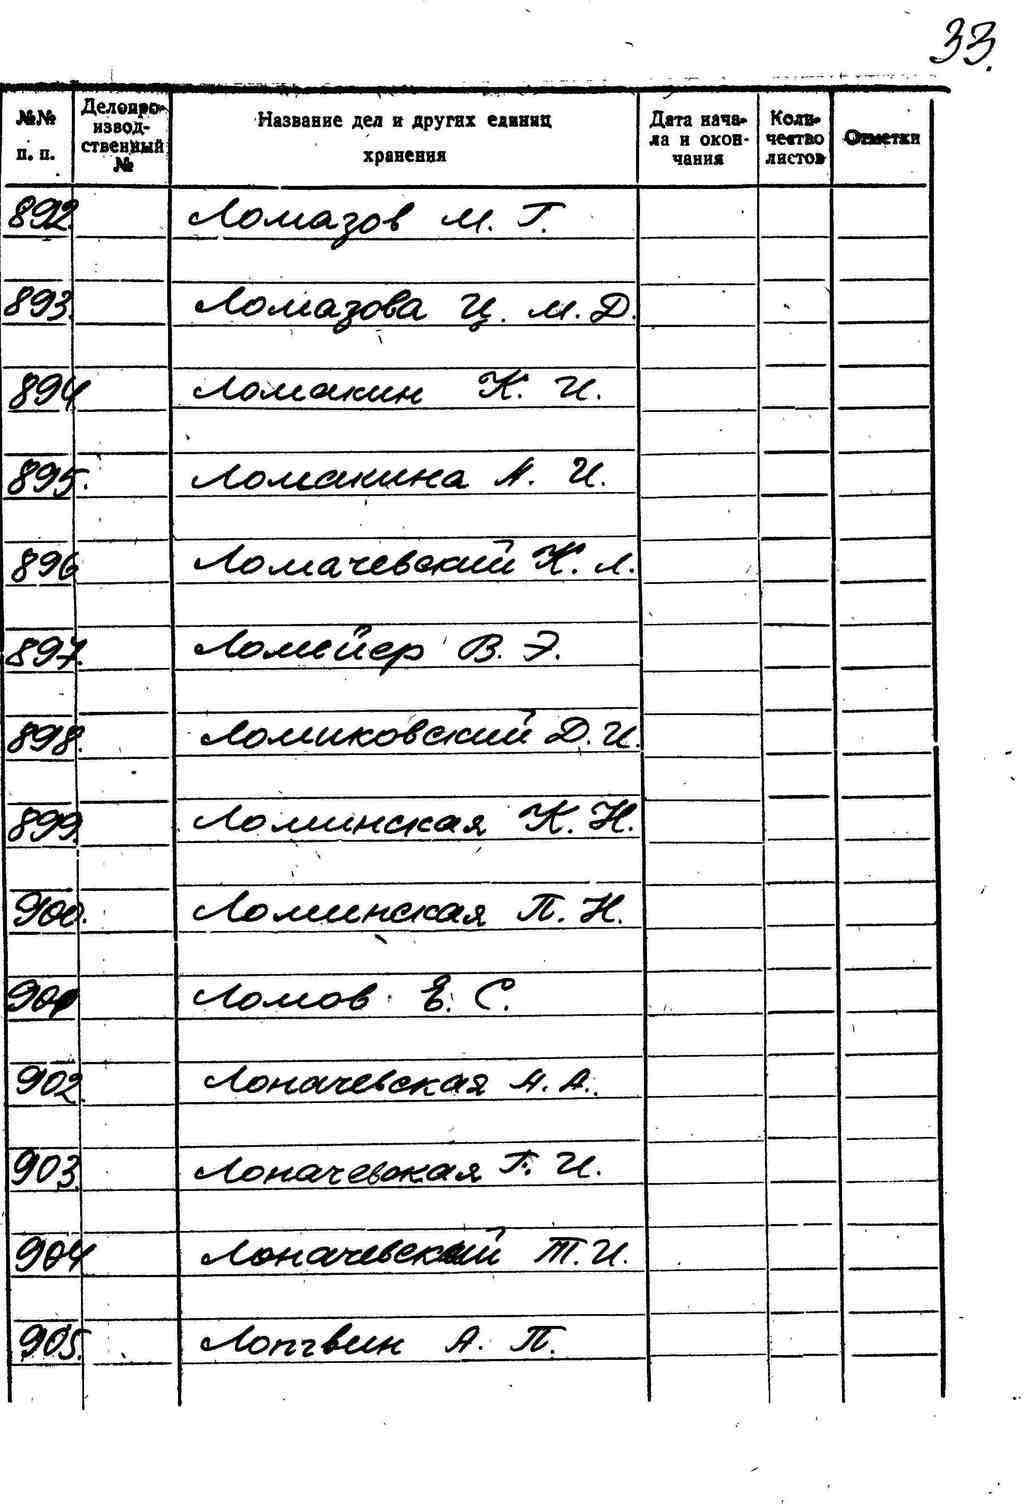 33.
№№ п. п. Делопроизводственный № Название дел и других единиц хранения Дата начала и окончания Количество листов Отметки
892. Ломазов М. Г.
893. Ломазова Ц. М. Д.
894 Ломакин К. И.
895. Ломакина А. И.
896 Ломачевский К. Л.
897. Ломейер В. Э.
898. Ломиковский Д. И.
899.Ломинская К. Н.
900. Ломинская П. Н.
901 Ломов Е. С.
902. Лоначевская А. А.
903. Лоначевская Г. И.
904 Лоначевский Т. И.
905. Лопгвин А. П.